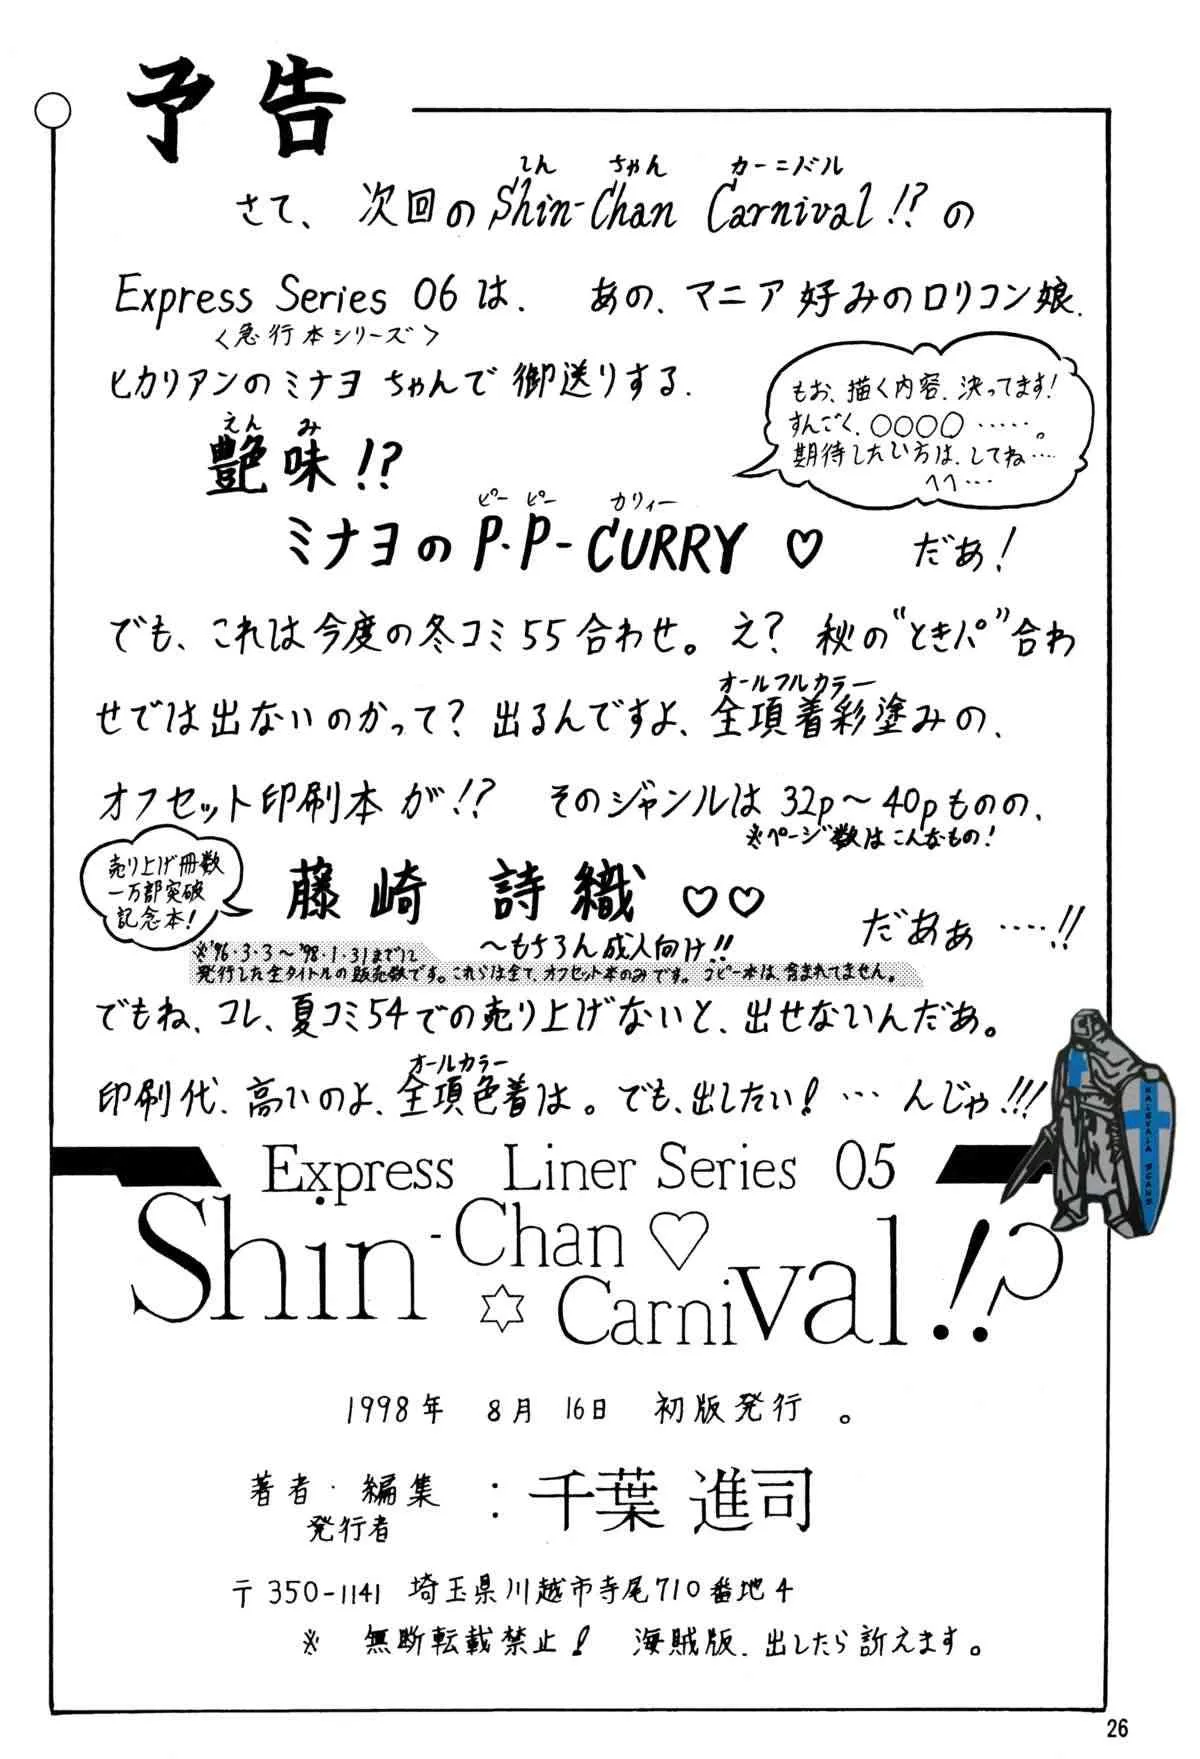 予告
しん ちゃん カーニバル
さて、次回のShin-Chan Carnival!?の
Express Series 06は、あの、マニア好みのロリコン娘、
<急行本シリーズ>
ヒカリアンのミナヨちゃんで御送りする、
もお、描く内容、決ってます!
すんごく、○○○○……。
期待したい方は、してね…
へへ…
えん み
艶味!?
ピー ピー カリィー
ミナヨのP.P-CURRY♡ だあ!
でも、これは今度の冬コミ55合わせ。え?秋の"ときパ"合わ
せでは出ないのかって?出るんですよ、全項着彩塗みの、
オールフルカラー
オフセット印刷本が!? そのジャンルは32p〜40pものの、
※ページ数はこんなもの!
売り上げ冊数
一万部突破
記念本!
藤崎 詩織♡♡ だあぁ……!!
〜もちろん成人向け!!
※'96・3・3〜'98・1・31までに
発行した全タイトルの販売数です。これらは全て、オフセット本のみです。コピー本は、含まれてません。
でもね、コレ、夏コミ54での売り上げないと、出せないんだあ。
オールカラー
印刷代、高いのよ、全項色着は。でも、出したい!…んじゃ!!!
KALEVALA SCANS
Express Liner Series 05
Shin-Chan♡
☆Carnival!?
1998年 8月 16日 初版発行。
著者・編集
発行者 : 千葉 進司
〒350-1141 埼玉県川越市寺尾710番地4
※ 無断転載禁止! 海賊版、出したら訴えます。
26